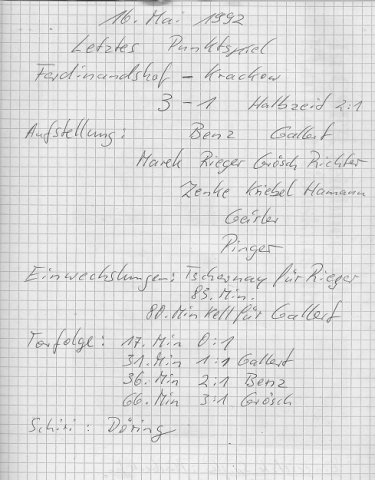 16. Mai 1992
Letztes Punktspiel
Ferdinandshof - Krackow
3 - 1 Halbzeit 2:1
Aufstellung: Benz Gallert
Marek Rieger Grösch Richter
Zenke Kriebel Hamann
Geisler
Pinger
Einwechslungen: Tschernay für Rieger
83. Min.
80. Min Kell für Gallert
Torfolge: 17. Min 0:1
31. Min 1:1 Gallert
36. Min 2:1 Benz
66. Min 3:1 Grösch
Schiri: Döring